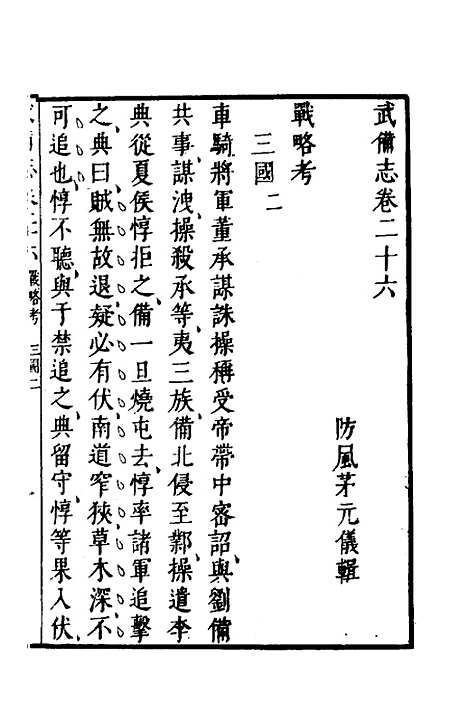 武備志卷二十六
防風茅元儀輯
戰略考
三國二
車騎將軍董承謀誅操稱受帝帶中密詔與劉備
共事謀洩操殺承等夷三族備北侵至鄴操遣李
典從夏侯惇拒之備一旦燒屯去惇率諸軍追擊
之典曰賊無故退疑必有伏南道窄狹草木深不
可追也惇不聽與于禁追之典留守惇等果入伏
戰略考 三國二